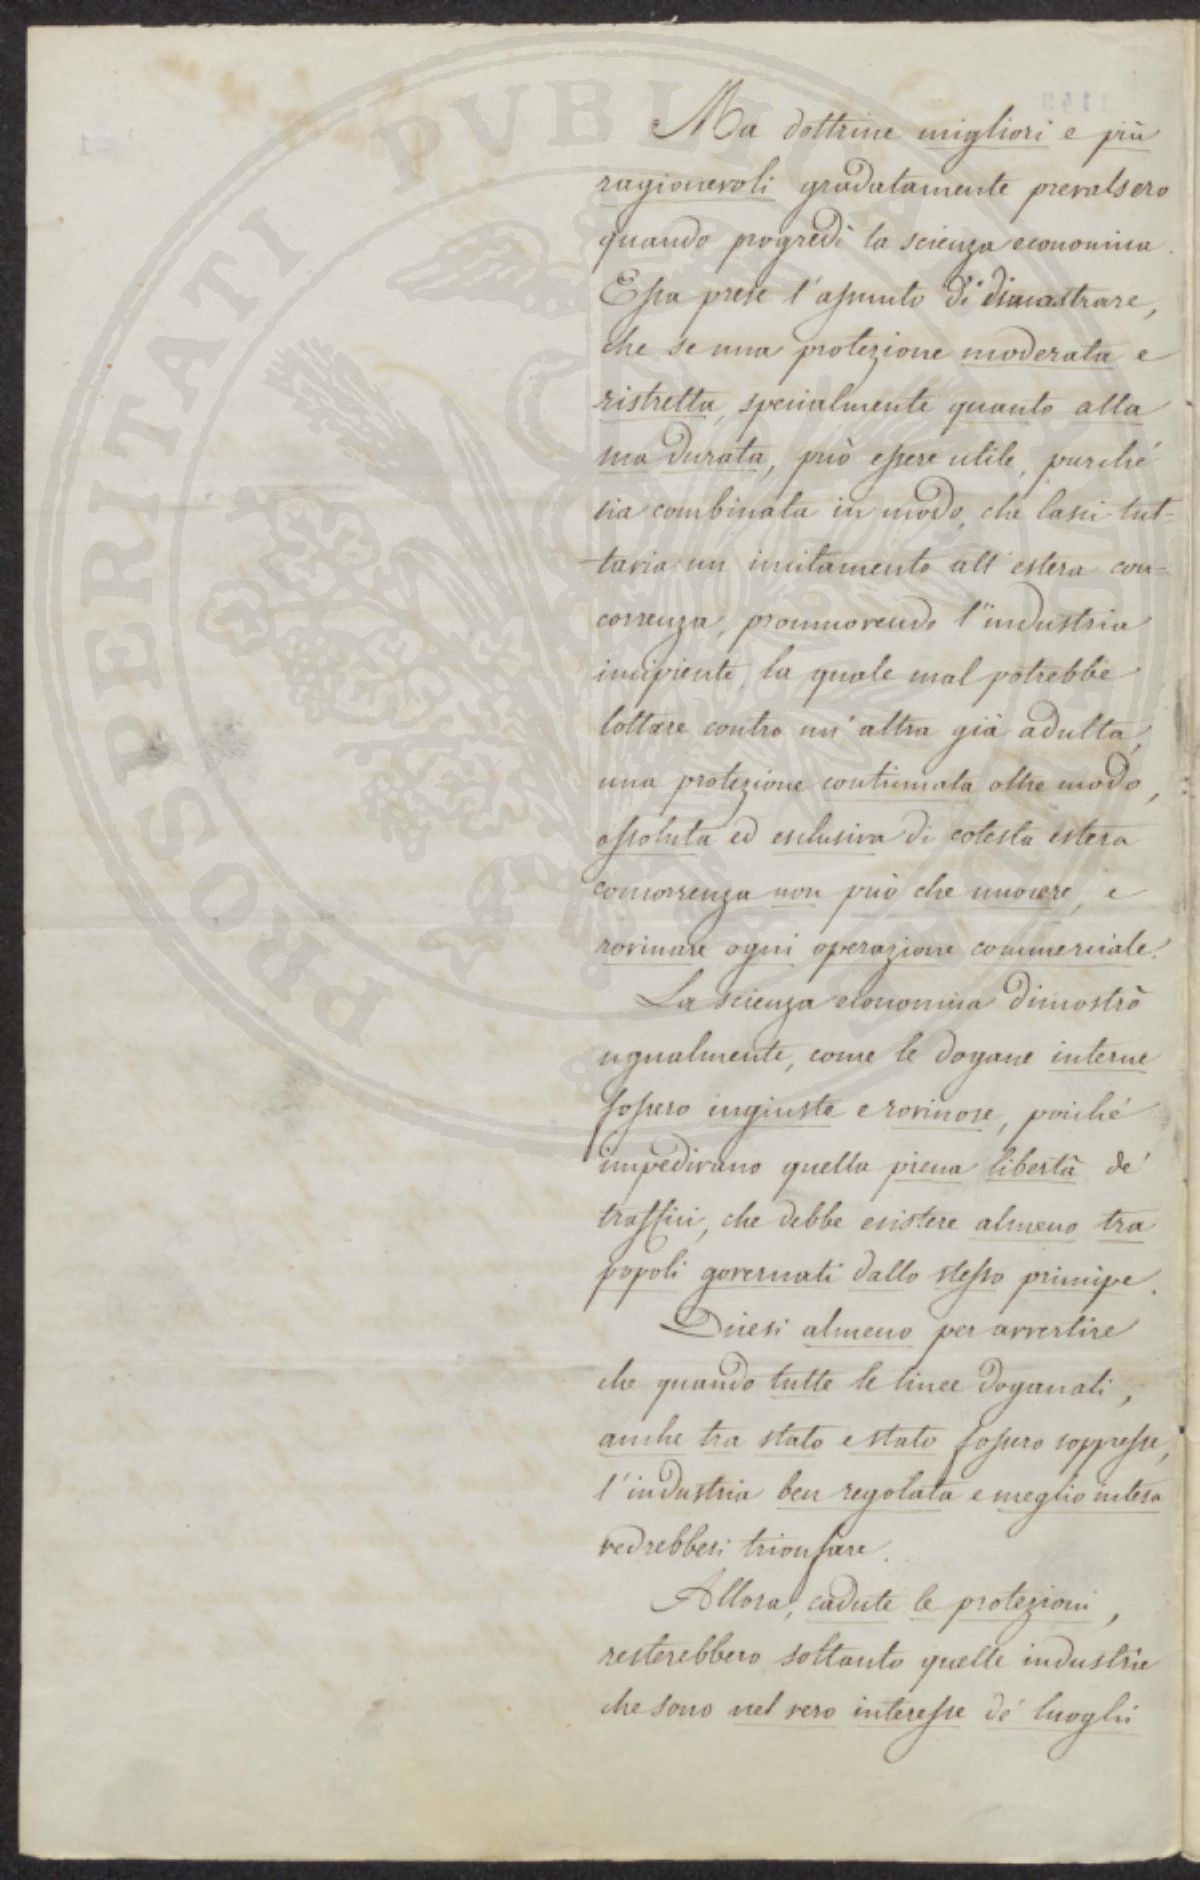 Ma dottrine migliori e più
ragionevoli gradatamente prevalsero
quando progredì la scienza economica.
Essa prese l'assunto di dimostrare,
che se una protezione moderata e
ristretta, specialmente quanto alla
sua durata, può essere utile, purché
sia combinata in modo, che lasci tut=
-tavia un incitamento all'estera con=
correnza, promuovendo l'industria
incipiente, la quale mal potrebbe
lottare contro un'altra già adulta,
una protezione continuata oltre modo,
assoluta ed esclusiva di cotesta estera
concorrenza non può che nuocere, e
rovinare ogni operazione commerciale.
La scienza economica dimostrò
ugualmente, come le dogane interne
fossero ingiuste e rovinose, poiché
impedivano quella piena libertà de'
traffici, che debbe esistere almeno tra
popoli governati dallo stesso principe.
Dicesi almeno per avvertire
che quando tutte le linee doganali,
anche tra stato e stato fossero soppresse,
l'industria ben regolata e meglio intesa
vedrebbesi trionfare.
Allora, cadute le protezioni,
resterebbero soltanto quelle industrie
che sono nel vero interesse de' luoghi
PROSPERITATI PVBLICAE